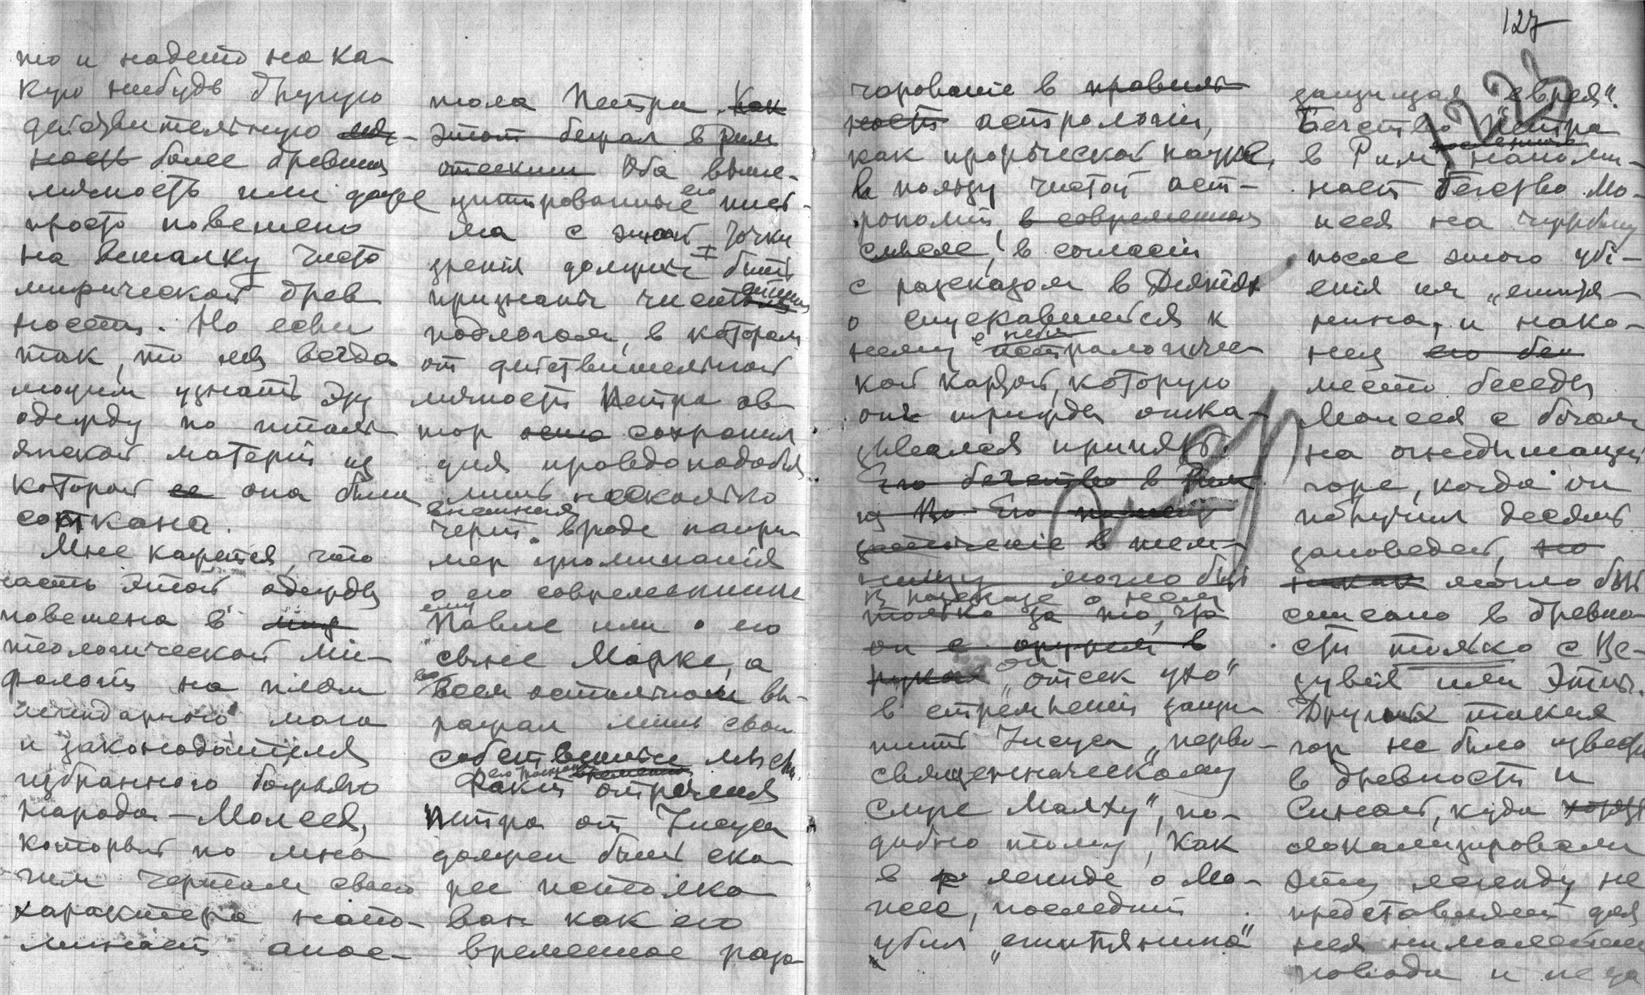 то и надето на ка-
кую нибудь другую
действительную
ность более древнюю
личность или даже
просто повешено
на вешалку чисто
мифической древ
ности. Но если
так, то мы всегда
можем узнать эту
одежду по
матеріи из
которой ее она была
соткана.
Мне кажется, что
часть этой одежды
повешена в
теологической ми-
фологіи на плечи
легендарного мага
и законодателя
избранного божьяго
народа – Моисея,
который по мно
гим чертам своего
характера напо-
минает апос-
тола Петра. Как
этот бежал в Рим
отсекши Оба выше-
цитированные его пись-
ма с этой точки
зренія должны быть
признаны чистейшим
подлогом, в котором
от действительной
личности Петра ав
тор сохранил
для правдоподобія
лишь несколько
внешних
черт. вроде напри
мер упоминанія
о его современнике
ему
Павле или о его
сыне Марке, а
во всем остальном вы-
ражал лишь свои
собственные мысли.
его троекратного временного
Факт отреченія
Петра от Іисуса
должен быть ско
рее истолко
ван как его
временное разо
127
чарованіе в правиль
ность астрологіи,
как пророческой науке,
в пользу чистой аст-
рономіи, в современном
смысле, в согласіи
с разсказом в Деяніях
о спускавшейся к
нему с неба астрологичес
кой картой, которую
он трижды отка-
зывался принять.
Его бегство в Рим
из Его
заточеніе в тем-
ницу могло быть
в разсказе о нем
только за то, что
он с оружием в
руках он "отсек ухо"
в стремленіи защи
тить Іисуса "перво-
священническому
слуге Малху", по-
добно тому, как
в легенде о Мо-
исее, последній
убил "египтянина"
122
защищая "еврея".
Бегство Петра
последнего
в Рим напоми-
нает бегство Мо-
исея на чужбину
после этого убі-
енія им "египтя-
нина", и нако-
нец его бе
место беседы
Моисея с богом
на огнедышащей
горе, когда он
получил десять
заповедей, но
никак могло быть
списано в древно
сти только с Ве-
зувія или Этны.
Других таких
гор не было известно
в древности и
Синай, куда
локализировали
эту легенду не
представляет для
нея ни малейшего
повода и не за